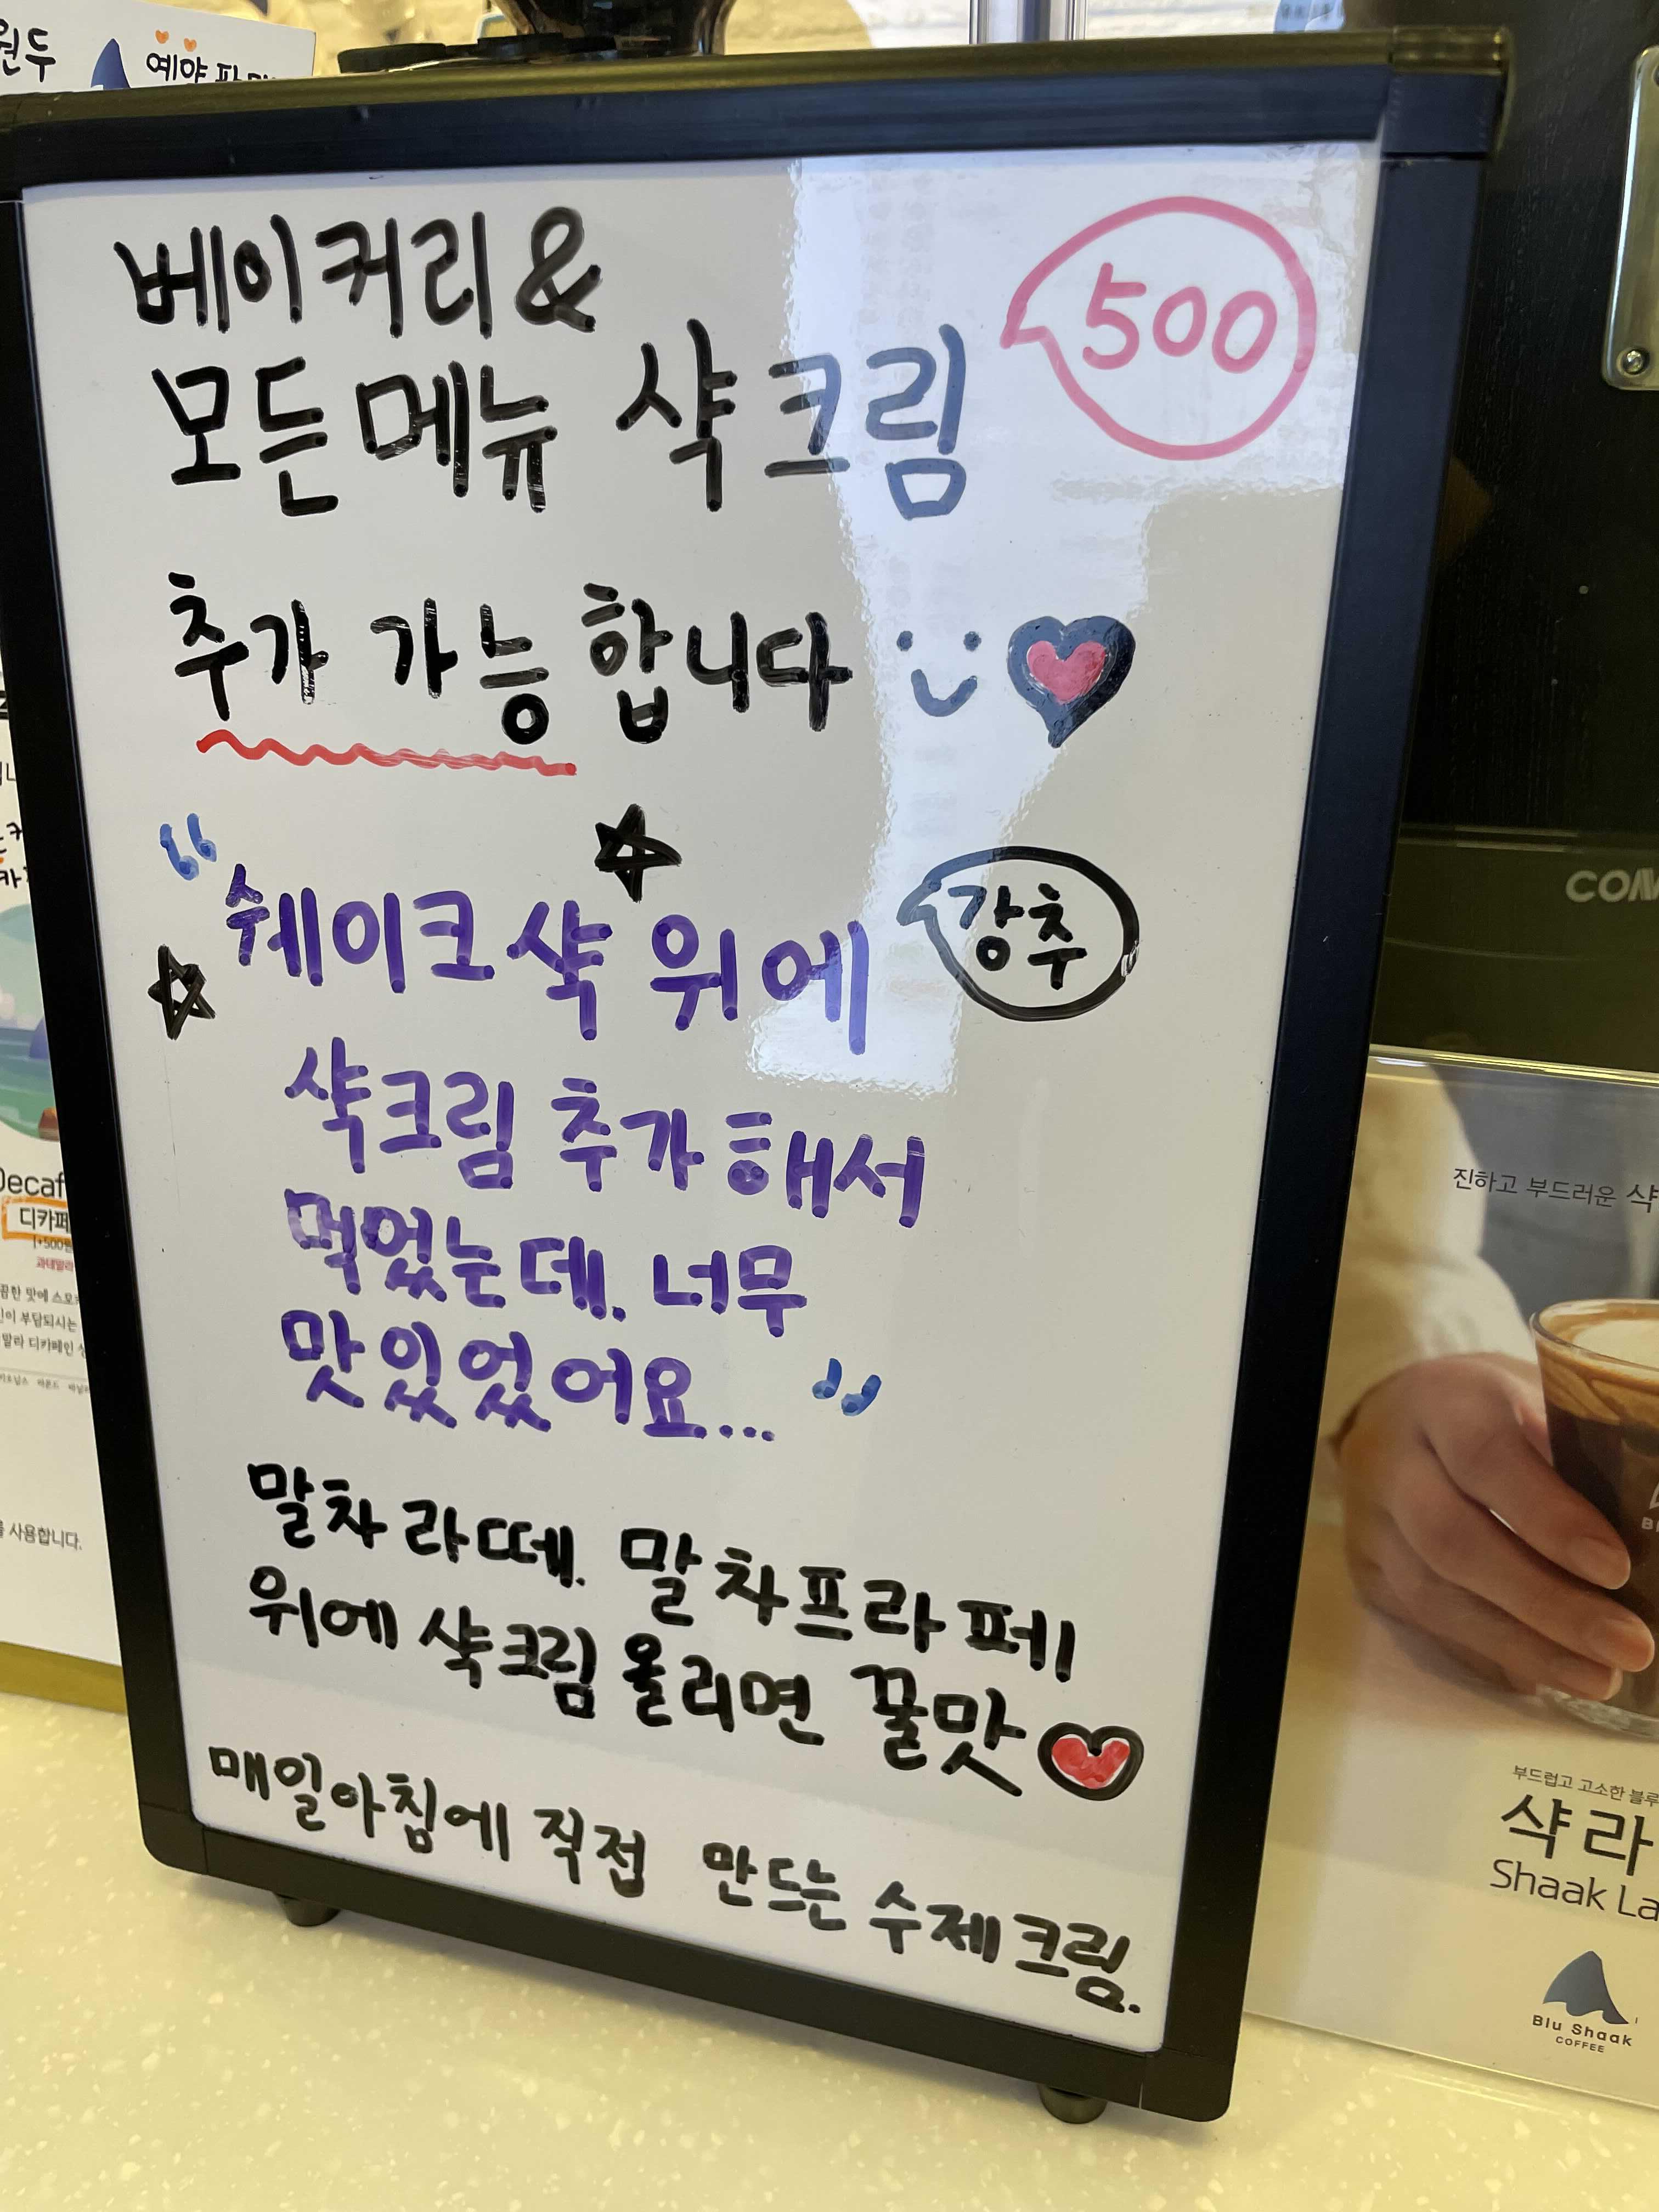 원두
예약
베이커리 &
500
모든메뉴 샥크림
추가 가능합니다
“쉐이크샥 위에
강추
샥크림 추가해서
먹었는데. 너무
맛있었어요... ”
말차라떼. 말차프라페
위에 샥크림 올리면 꿀맛
매일아침에 직접 만드는 수제크림.
Decaf
디카페
를 사용합니다.
진하고 부드러운 샥
부드럽고 고소한 블루
샥라
Shaak La
Blu Shaak
COFFEE